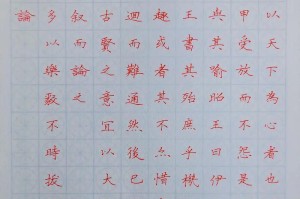 以天下為心者也
甲受放而不怨是
與其喻昭王曰伊
王書其殆庶乎機
趣或者其不亦惜
迴而難通然後已
古賢之意宜以大
叙而論之
多以樂毅不時拔
論